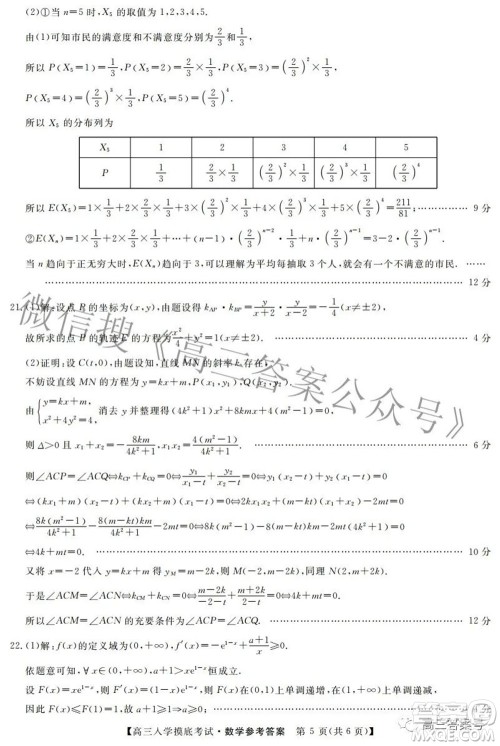 (2)①当 n=5 时, X₅ 的取值为 1,2,3,4,5.
由(1)可知市民的满意度和不满意度分别为 2/3 和 1/3,
所以 P(X₅=1)=1/3, P(X₅=2)=2/3×1/3, P(X₅=3)=(2/3)²×1/3,
P(X₅=4)=(2/3)³×1/3, P(X₅=5)=(2/3)⁴.
所以 X₅ 的分布列为
X₅ 1 2 3 4 5
P 1/3 2/3×1/3 (2/3)²×1/3 (2/3)³×1/3 (2/3)⁴
所以 E(X₅)=1×1/3+2×2/3×1/3+3×(2/3)²×1/3+4×(2/3)³×1/3+5×(2/3)⁴=211/81; 9 分
②E(Xₙ)=1×1/3+2×2/3×1/3+⋯+(n-1)·(2/3)ⁿ⁻²·1/3+n·(2/3)ⁿ⁻¹=3-2·(2/3)ⁿ⁻¹.
当 n 趋向于正无穷大时, E(Xₙ)趋向于 3,可以理解为平均每抽取 3 个人,就会有一个不满意的市民. ……
12 分
21.(1)解:设点 R 的坐标为(x,y),由题设得 k_AP·k_BP=y/(x+2)·y/(x-2)=-1/4(x≠±2),
故所求的点 的轨迹 的方程为 x²/4+y²=1(x≠±2). 4 分
(2)证明:设 C(t,0),由题设知,直线 MN 的斜率 k 存在,
不妨设直线 MN 的方程为 y=kx+m, P(x₁,y₁),Q(x₂,y₂).
由{y=kx+m, x²+4y²=4, 消去 y 并整理得(4k²+1)x²+8kmx+4(m²-1)=0,
则 Δ>0 且 x₁+x₂=-8km/(4k²+1), x₁x₂=4(m²-1)/(4k²+1). 6 分
则∠ACP=∠ACQ⇔k_CP+k_CQ=0⇔y₁/(x₁-t)+y₂/(x₂-t)=0
⇔(kx₁+m)(x₂-t)+(kx₂+m)(x₁-t)=0⇔2kx₁x₂+(m-kt)(x₁+x₂)-2mt=0
⇔8k(m²-1)/(4k²+1)-8(m-kt)km/(4k²+1)-2mt=0⇔8k(m²-1)-8(m-kt)km-2mt(4k²+1)=0
⇔4k+mt=0. 10 分
又将 x=-2 代入 y=kx+m 得 y_M=m-2k,则 M(-2,m-2k),同理 N(2,m+2k).
于是∠ACM=∠ACN⇔k_CM+k_CN=0⇔(m-2k)/(-2-t)+(m+2k)/(2-t)=0⇔4k+mt=0.
所以∠ACM=∠ACN 的充要条件为∠ACP=∠ACQ. 12 分
22.(1)解: f(x)的定义域为(0,+∞), f′(x)=-e¹⁻ˣ+(a+1)/x≥0.
依题意可知,∀x∈(0,+∞),a+1≥xe¹⁻ˣ恒成立.
设 F(x)=xe¹⁻ˣ,则 F′(x)=(1-x)e¹⁻ˣ,所以 F(x)在(0,1)上单调递增,在(1,+∞)上单调递减,
因此 F(x)ₘₐₓ=F(1)=1,故 a+1≥1⇒a≥0;
【高三入学摸底考试·数学参考答案 第 5 页(共 6 页)】
微信搜《高三答案公众号》
高三答案号